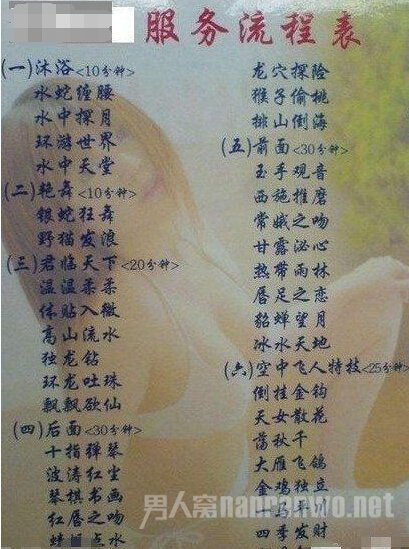 服务流程表
(一)沐浴<10分钟>
水蛇缠腰
水中探月
环游世界
水中天堂
(二)艳舞<10分钟>
银蛇狂舞
野猫发浪
(三)君临天下<20分钟>
温温柔柔
体贴入微
高山流水
独龙钻
环龙吐珠
飘飘欲仙
(四)后面<30分钟>
十指弹琴
波涛红尘
琴棋书画
红唇之吻
蜻蜓点水
龙穴探险
猴子偷桃
排山倒海
(五)前面<30分钟>
玉手观音
西施推磨
常娥之吻
甘露泌心
热带雨林
唇足之恋
貂蝉望月
冰水天地
(六)空中飞人特技<25分钟>
倒挂金钩
天女散花
荡秋千
大雁飞鸽
金鸡独立
一马平川
四季发财
男人窝nanrenwo.net